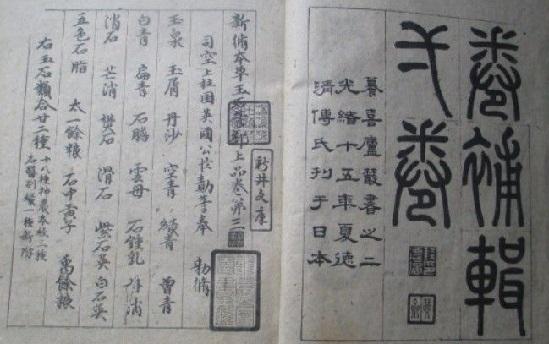 卷補輯
弌卷
籑喜廬叢書之二
光緒十五年夏德
清傅氏刊于日本
新脩本草玉石等部上品卷第三
新井文庫
司空上柱國英國公臣勣等奉 勑脩
玉泉 玉屑 丹沙 空青 緑青 曾青
白青 扁青 石膽 雲母 石鍾乳 朴消
消石 芒消 礬石 滑石 紫石英 白石英
五色石脂 太一餘粮 石中黄子 禹餘粮
右玉石類合廿二種 十八種神農本經二種
名醫別録 二種新附